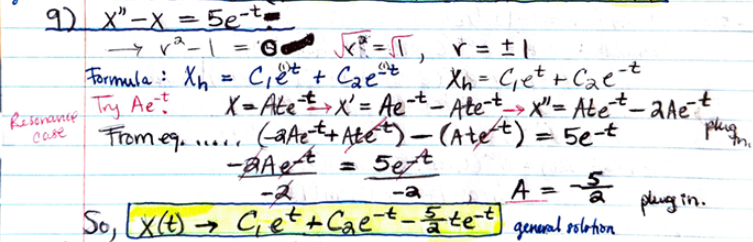 9) x'' - x = 5e^-t
→ r² - 1 = 0 √r² = √1, r = ±1
Formula: Xh = C₁e^(1)t + C₂e^(-1)t Xh = C₁e^t + C₂e^-t
Resonance case
Try Ae^-t. X = Ate^-t → X' = Ae^-t - Ate^-t → X'' = Ate^-t - 2Ae^-t
plug in.
From eq. ..... (-2Ae^-t + Ate^-t) - (Ate^-t) = 5e^-t
-2Ae^-t = 5e^-t
-2 -2 A = -5/2 plug in.
So, X(t) → C₁e^t + C₂e^-t - 5/2 te^-t general solution